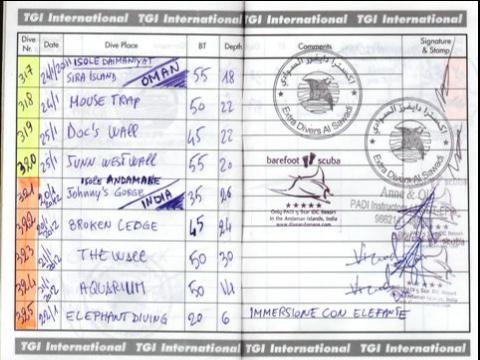 TGI International TGI International TGI International TGI International
Dive Nr. Date Dive Place BT Depth Comments Signature & Stamp
317 24/1 ISOLE DAIMANIYAT
SIRA ISLAND OMAN 55 18
318 24/1 MOUSE TRAP 50 22
319 25/1 DOC'S WALL 45 22
320 25/1 JUNN WEST WALL 55 20
321 20/1 2012 ISOLE ANDAMANE
Johnny's GORGE INDIA 35 26
322 BROKEN LEDGE 45 24
323 21/1 2012 THE WALL 50 30
324 2012 AQUARIUM 50
325 22/1 ELEPHANT DIVING 20 6 IMMERSIONE CON ELEFANTE
إكسترا دايفرز السوادي
Extra Divers Al Sawadi
إكسترا دايفرز السوادي
Extra Divers Al Sawadi
barefoot scuba
Only PADI 5 Star IDC Resort
in the Andaman Islands, India
www.diveandamans.com
Anne &
PADI Instructor
scuba
TGI International TGI International TGI International TGI International